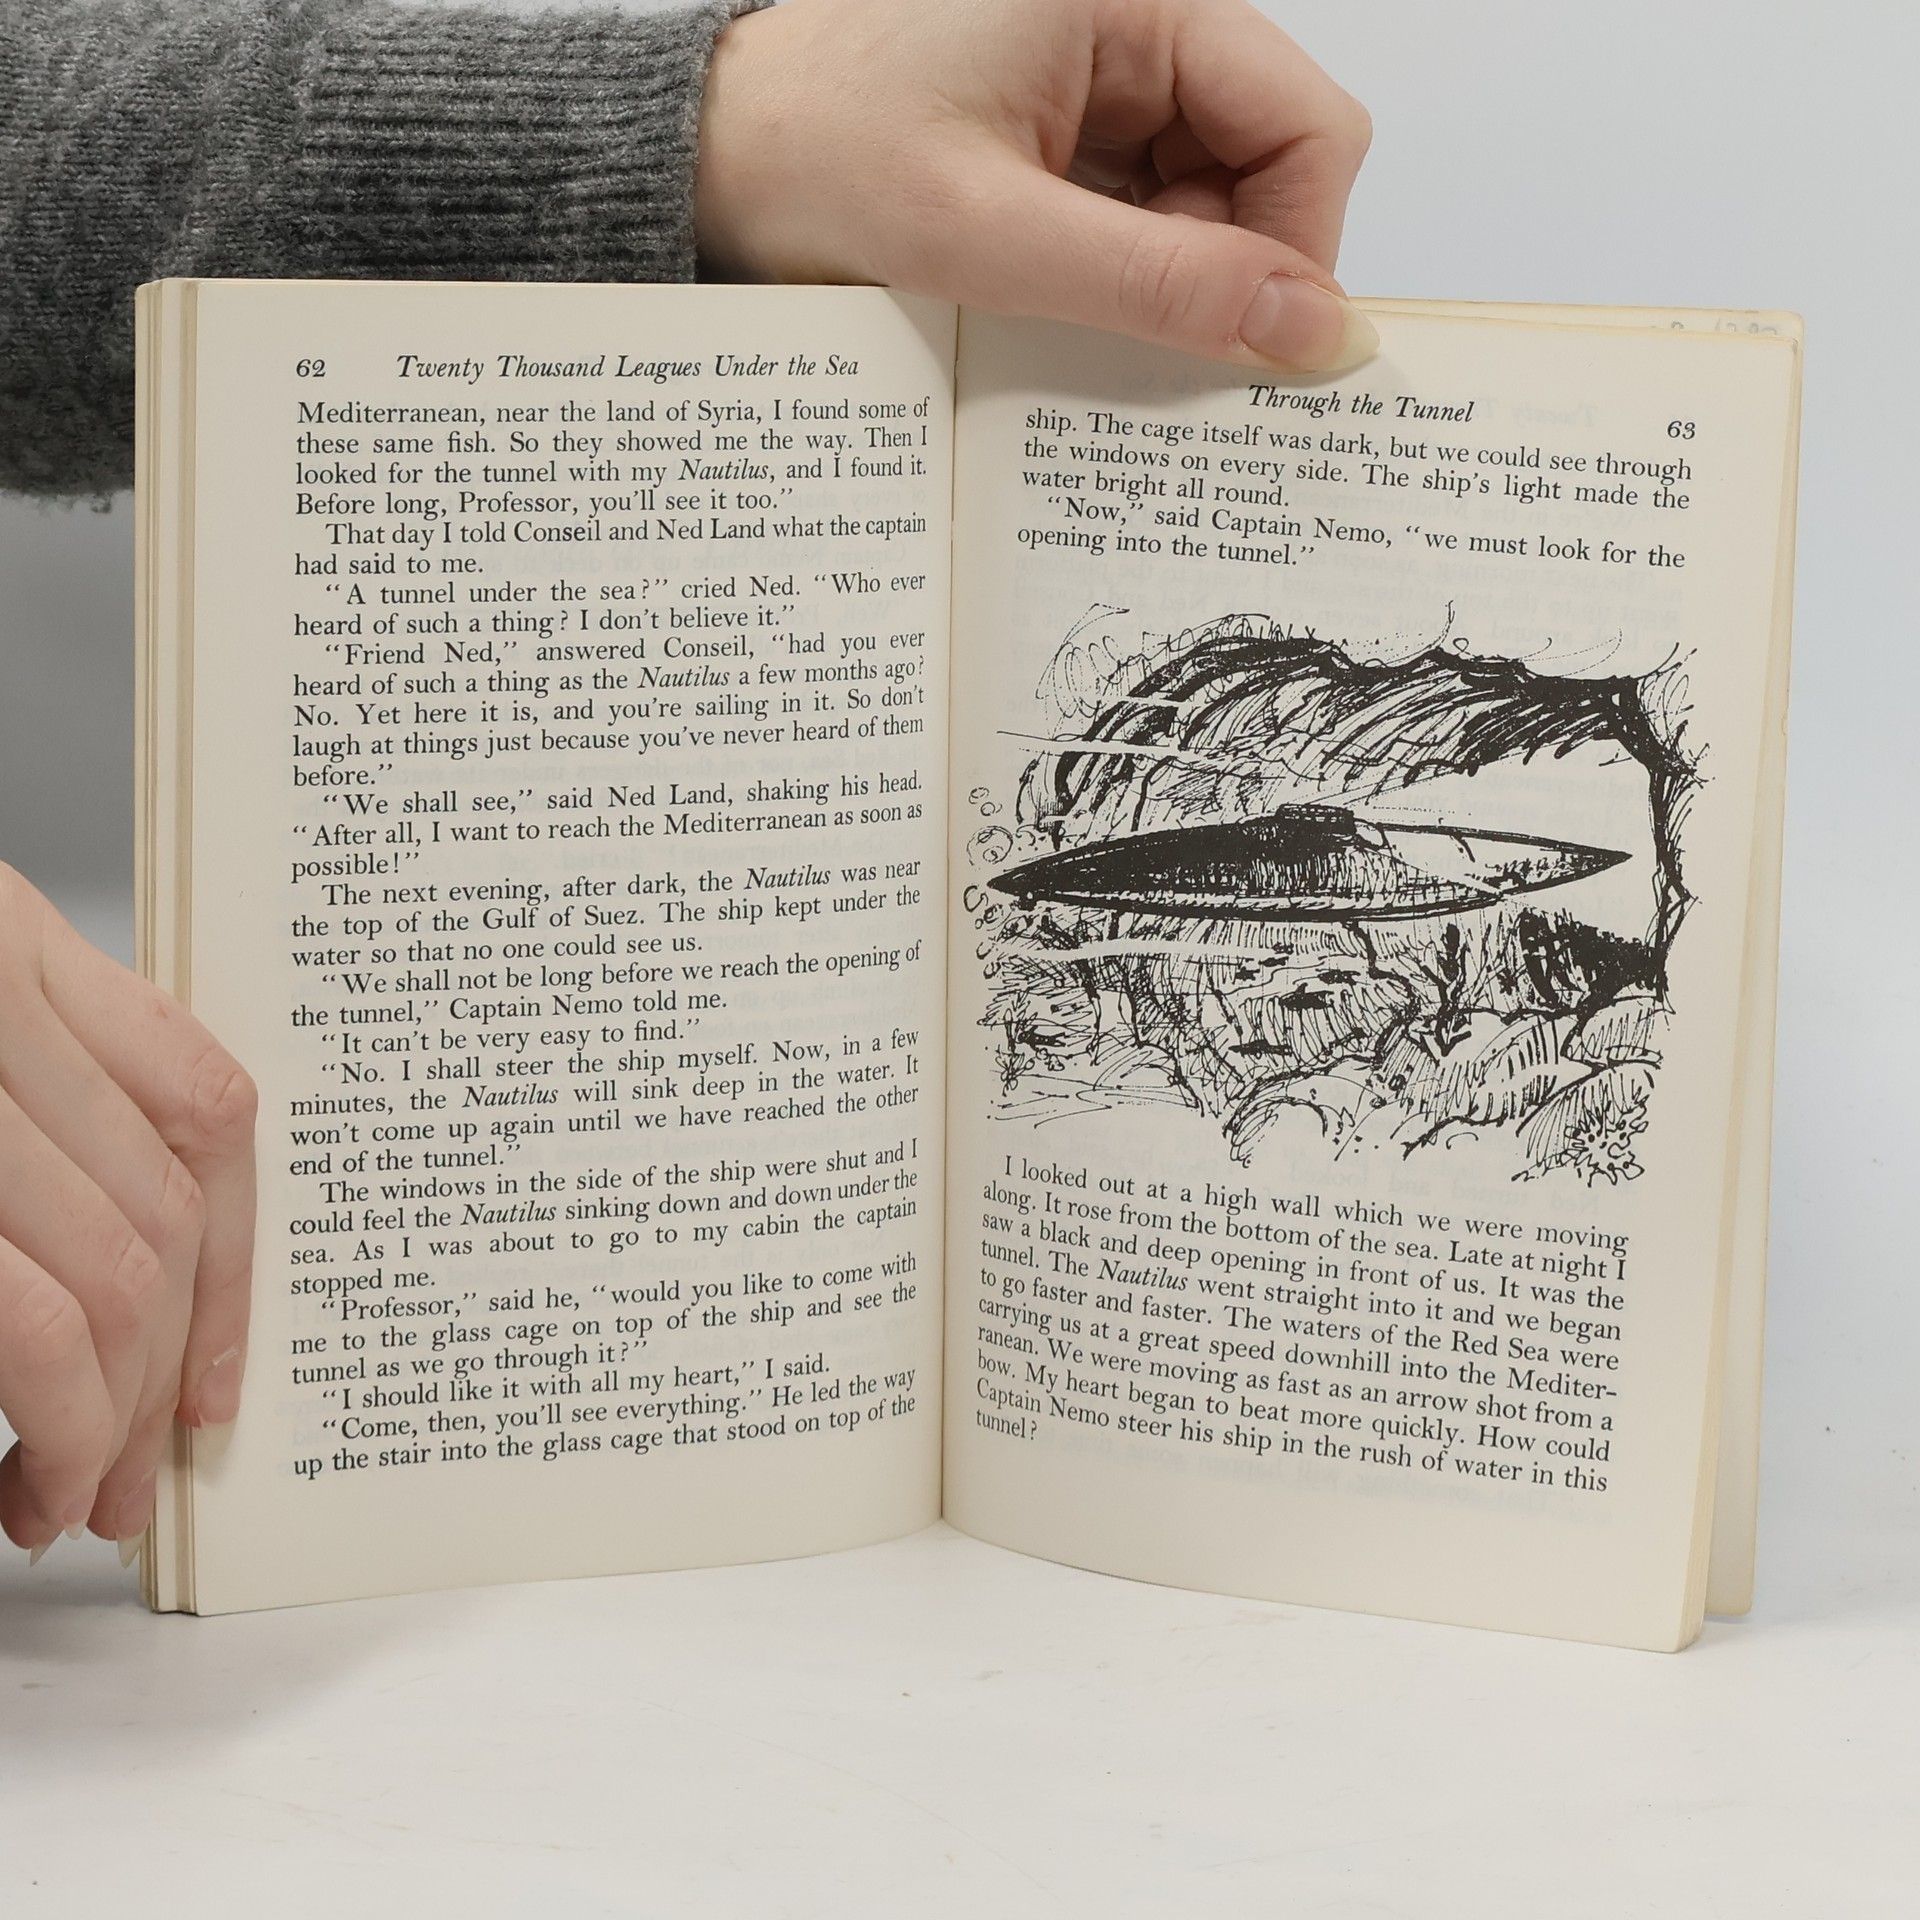 62 Twenty Thousand Leagues Under the Sea
Mediterranean, near the land of Syria, I found some of
these same fish. So they showed me the way. Then I
looked for the tunnel with my Nautilus, and I found it.
Before long, Professor, you'll see it too.”
That day I told Conseil and Ned Land what the captain
had said to me.
“A tunnel under the sea?” cried Ned. “Who ever
heard of such a thing? I don't believe it.”
“Friend Ned,” answered Conseil, “had you ever
heard of such a thing as the Nautilus a few months ago?
No. Yet here it is, and you're sailing in it. So don't
laugh at things just because you've never heard of them
before.”
“We shall see,” said Ned Land, shaking his head.
“After all, I want to reach the Mediterranean as soon as
possible!”
The next evening, after dark, the Nautilus was near
the top of the Gulf of Suez. The ship kept under the
water so that no one could see us.
“We shall not be long before we reach the opening of
the tunnel,” Captain Nemo told me.
“It can't be very easy to find.”
“No. I shall steer the ship myself. Now, in a few
minutes, the Nautilus will sink deep in the water. It
won't come up again until we have reached the other
end of the tunnel.”
The windows in the side of the ship were shut and I
could feel the Nautilus sinking down and down under the
sea. As I was about to go to my cabin the captain
stopped me.
“Professor,” said he, “would you like to come with
me to the glass cage on top of the ship and see the
tunnel as we go through it?”
“I should like it with all my heart,” I said.
“Come, then, you'll see everything.” He led the way
up the stair into the glass cage that stood on top of the
Through the Tunnel 63
ship. The cage itself was dark, but we could see through
the windows on every side. The ship's light made the
water bright all round.
“Now,” said Captain Nemo, “we must look for the
opening into the tunnel.”
I looked out at a high wall which we were moving
along. It rose from the bottom of the sea. Late at night I
saw a black and deep opening in front of us. It was the
tunnel. The Nautilus went straight into it and we began
to go faster and faster. The waters of the Red Sea were
carrying us at a great speed downhill into the Mediter-
ranean. We were moving as fast as an arrow shot from a
bow. My heart began to beat more quickly. How could
Captain Nemo steer his ship in the rush of water in this
tunnel?